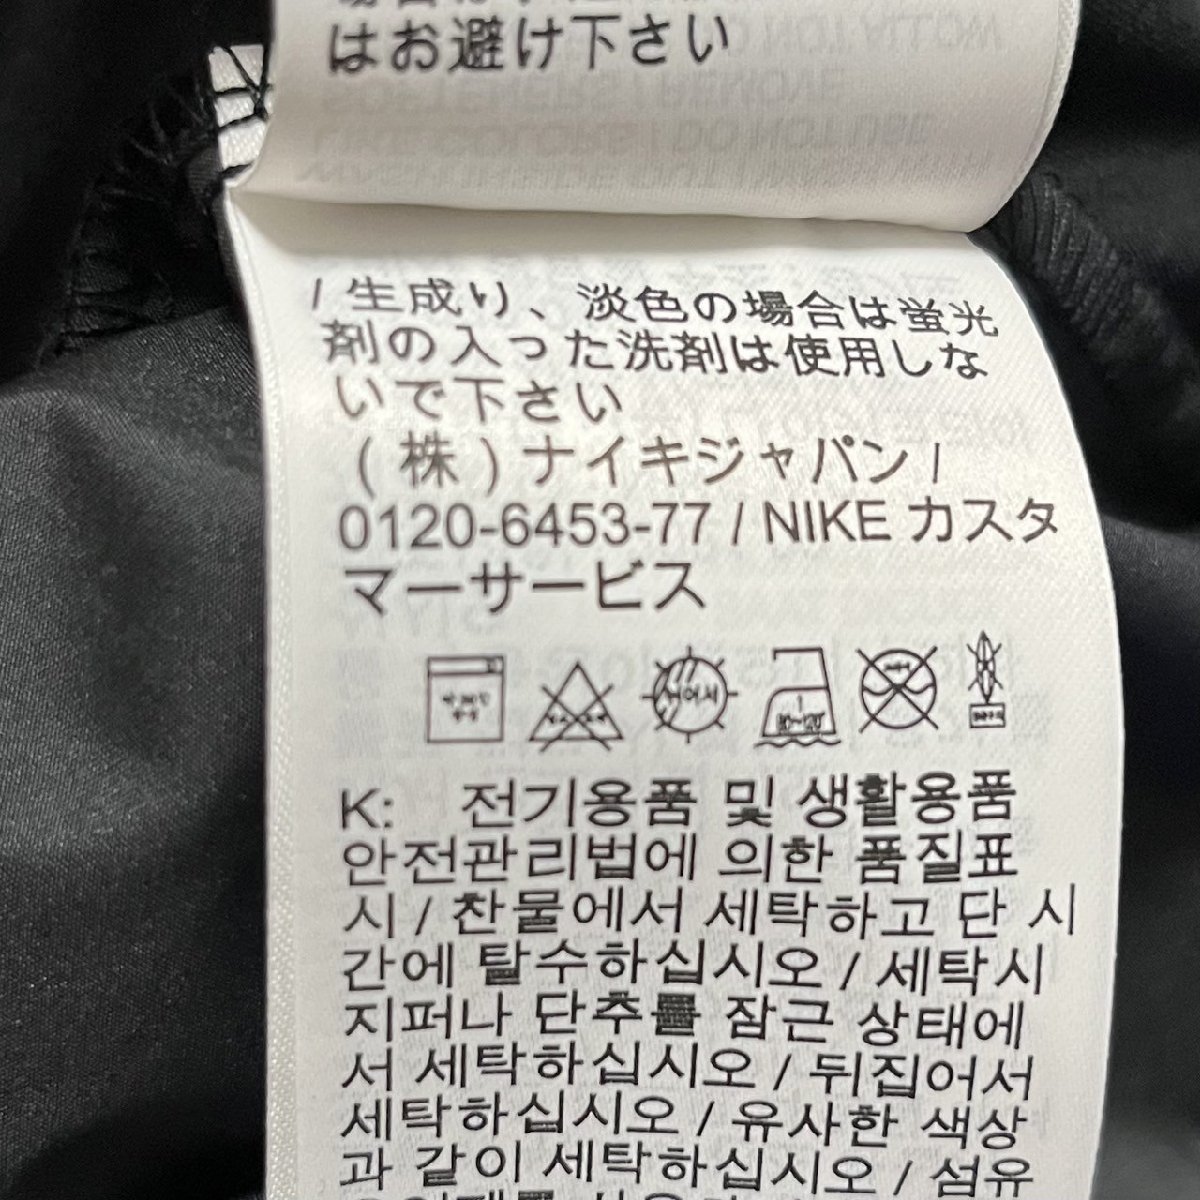 はお避け下さい
/ 生成り、淡色の場合は蛍光
剤の入った洗剤は使用しな
いで下さい
(株)ナイキジャパン /
0120-6453-77 / NIKE カスタ
マーサービス
80~120
K: 전기용품 및 생활용품
안전관리법에 의한 품질표
시 / 찬물에서 세탁하고 단 시
간에 탈수하십시오 / 세탁시
지퍼나 단추를 잠근 상태에
서 세탁하십시오 / 뒤집어서
세탁하십시오 / 유사한 색상
과 같이 세탁하십시오 / 섬유